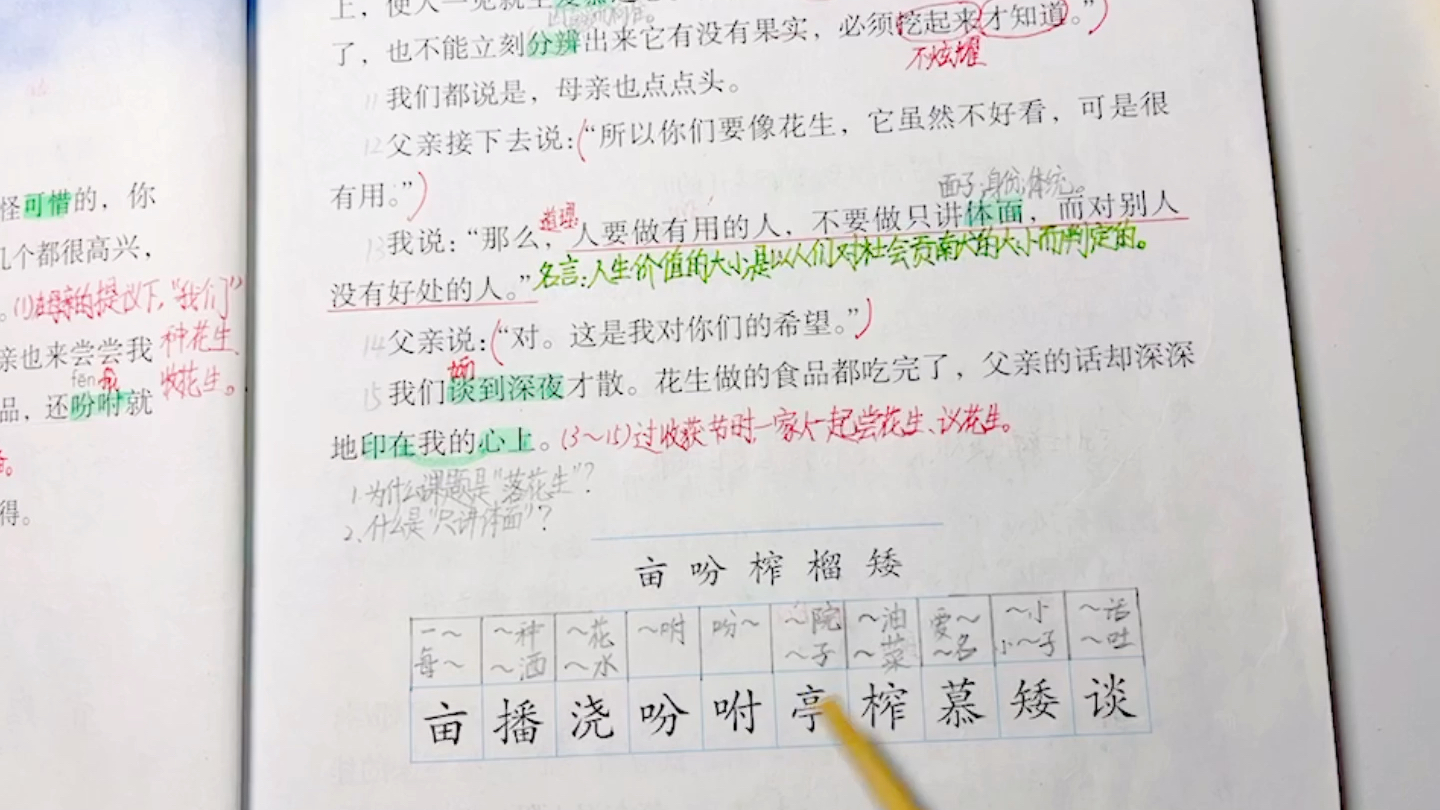 怪可惜的，你
几个都很高兴，
。(1)在母亲的提议下，“我们”
种花生、
收花生。
亲也来尝尝我
fēn
品，还吩咐就
得。
了，也不能立刻分辨出来它有没有果实，必须挖起来才知道。”
不炫耀
11我们都说是，母亲也点点头。
12父亲接下去说：“所以你们要像花生，它虽然不好看，可是很
有用。”
面子；身份；体统。
道理
13我说：“那么，人要做有用的人，不要做只讲体面，而对别人
没有好处的人。”
名言：人生价值的大小是以人们对社会贡献的大小而判定的。
14父亲说：“对。这是我对你们的希望。”
15我们谈到深夜才散。花生做的食品都吃完了，父亲的话却深深
地印在我的心上。(3～15)过收获节时一家人一起尝花生、议花生。
1.为什么课题是“落花生”？
2.什么是“只讲体面”？
亩 吩 榨 榴 矮
一～ ～种 ～花 ～咐 吩～ ～院 ～油 爱～ ～小 ～话
每～ ～洒 ～水 ～子 ～菜 ～名 小～子 ～吐
亩 播 浇 吩 咐 亭 榨 慕 矮 谈